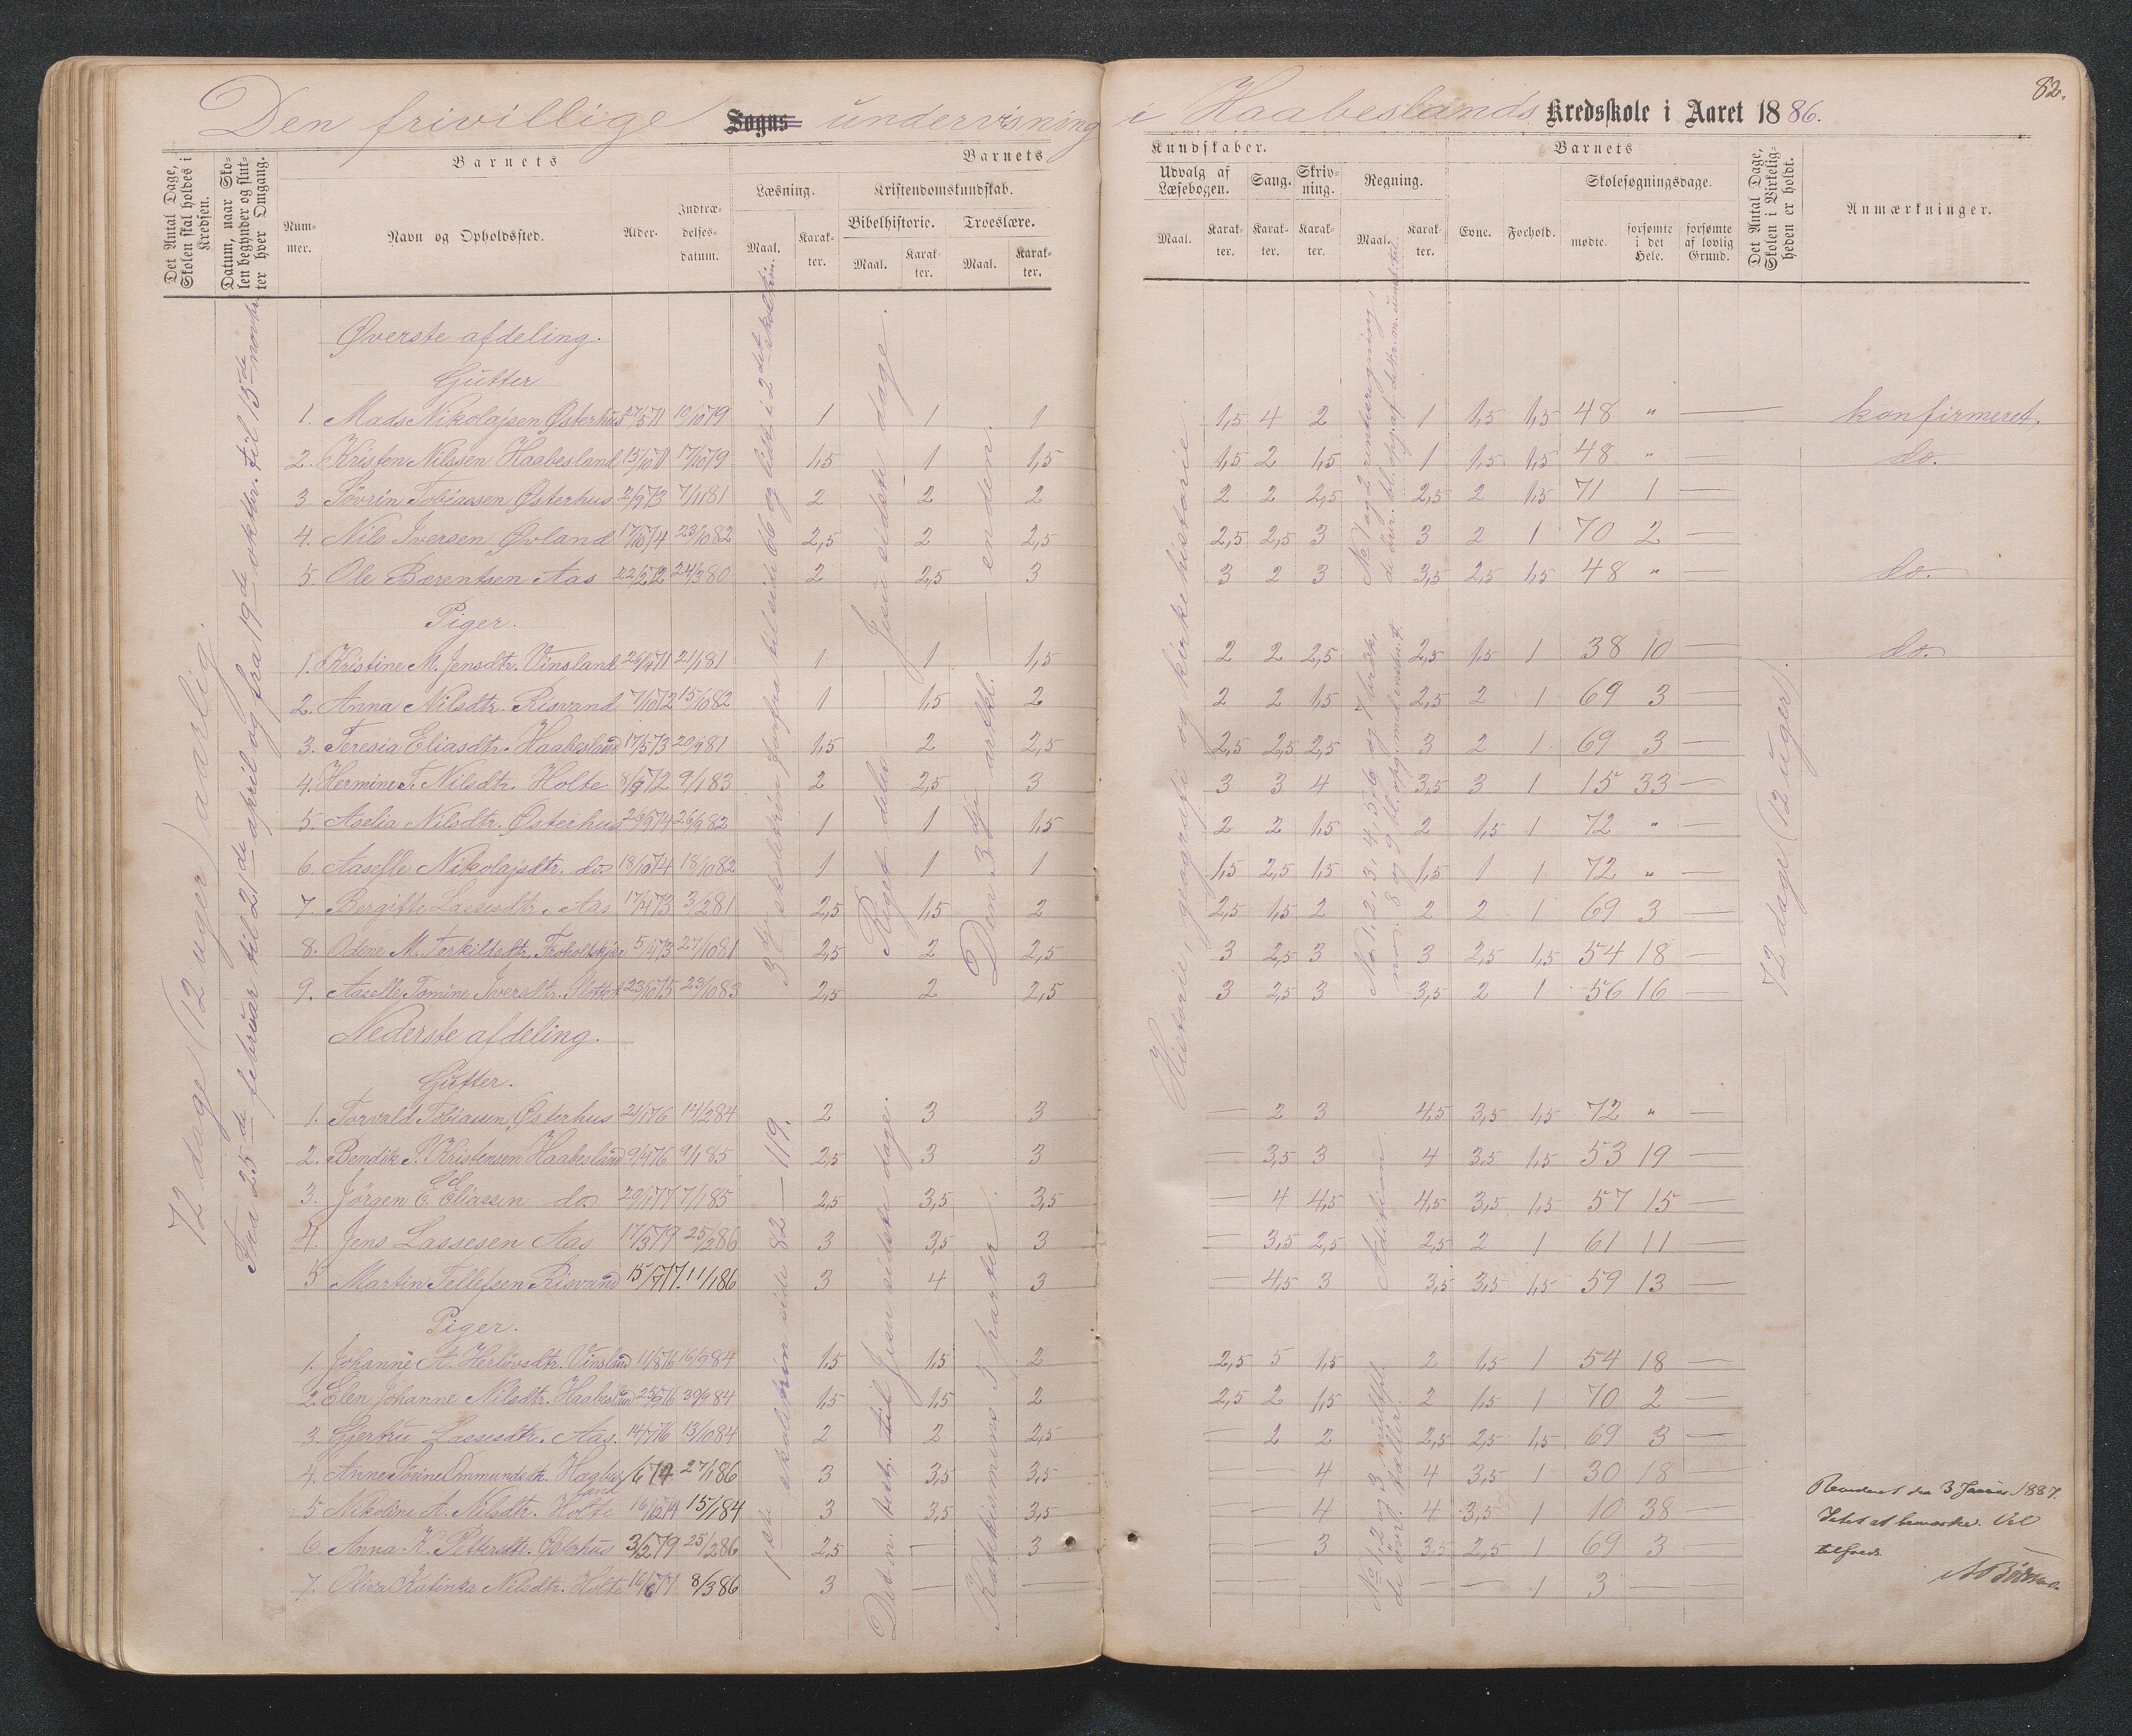 82.
Den frivillige Sogns undervisning i Haabeslands Kredsskole i Aaret 1886.
Det Antal Dage, Skolen skal holdes i Kredsen.
Datum, naar Skolen begynder og slutter hver Omgang.
Barnets
Nummer.
Navn og Opholdssted.
Alder.
Indtrædelsesdatum.
Barnets
Læsning.
Maal.
Karakter.
Kristendomskundskab.
Bibelhistorie.
Maal.
Karakter.
Troeslære.
Maal.
Karakter.
Kundskaber.
Udvalg af Læsebogen.
Maal.
Karakter.
Sang.
Karakter.
Skrivning.
Karakter.
Regning.
Maal.
Karakter.
Barnets
Evne.
Forhold.
Skolesøgningsdage.
mødte.
forsømte i det Hele.
forsømte af lovlig Grund.
Det Antal Dage, Skolen i Virkeligheden er holdt.
Anmærkninger.
72 dage (12 uger) aarlig.
Fra 25de februar til 21de april og fra 19de oktbr. til 13de novbr.
Øverste afdeling.
Gutter
1. Mads Nikolajsen Østerhus 27/5 71 10/10 79 1 1 1 1,5 4 2 1 1,5 1,5 48 " — konfirmeret.
2. Kristen Nilssen Haabesland 15/10 71 7/10 79 1,5 1 1,5 1,5 2 1,5 1 1,5 1,5 48 " — do.
3. Sövrin Tobiassen Østerhus 2/9 73 7/1 81 2 2 2 2 2 2,5 2,5 2 1,5 71 1 —
4. Nils Iversen Øvland 17/10 74 23/10 82 2,5 2 2,5 2,5 2,5 3 3 2 1 70 2 —
5. Ole Bærentsen Aas 22/2 72 24/3 80 2 2,5 3 3 2 3 3,5 2,5 1,5 48 " — do.
Piger.
1. Kristine M. Jensdtr. Vinsland 26/4 71 2/1 81 1 1 1,5 2 2 2,5 2,5 1,5 1 38 10 — do.
2. Anna Nilsdtr. Risvand 7/10 72 15/10 82 1 1,5 2 2 2 1,5 2,5 2 1 69 3 —
3. Teresia Eliasdtr. Haabesland 17/5 73 20/9 81 1,5 2 2,5 2,5 2,5 2,5 3 2 1 69 3 —
4. Hermine T. Nilsdtr. Holte 8/9 72 9/1 83 2 2,5 3 3 3 4 3,5 3 1 15 33 —
5. Aselia Nilsdtr. Østerhus 26/9 74 26/9 82 1 1 1,5 2 2 1,5 2 1,5 1 72 " —
6. Aasefle Nikolajsdtr. do. 18/10 74 18/10 82 1 1 1 1,5 2,5 1,5 1,5 1 1 72 " —
7. Bergitte Lassesdtr. Aas 17/4 73 3/2 81 2,5 1,5 2 2,5 1,5 2 2 2 1 69 3 —
8. Odine M. Terkildsdtr. 5/4 73 27/10 81 2,5 2 2,5 3 2,5 3 3 2,5 1,5 54 18 —
9. Aaselle Tomine Iversdtr. 23/10 75 23/10 83 2,5 2 2,5 3 2,5 3 3,5 2 1 56 16 —
Nederste afdeling.
Gutter.
1. Torvald Tobiassen Østerhus 21/1 76 14/2 84 2 3 3 — 2 3 4,5 3,5 1,5 72 " —
2. Bendik P. Kristensen Haabesland 9/4 76 9/1 85 2,5 3 3 — 3,5 3 4 3,5 1,5 53 19 —
3. Jörgen E. Eliassen do. 20/1 77 7/1 85 2,5 3,5 3,5 — 4 4,5 4,5 3,5 1,5 57 15 —
4. Jens Lassesen Aas 17/3 79 25/2 86 3 3,5 3 — 3,5 2,5 2,5 2 1 61 11 —
5 Martin Tellefsen Risvand 15/7 77. 11/1 86 3 4 3 — 4,5 3 3,5 3,5 1,5 59 13 —
Piger.
1. Johanne A. Herlövsdtr. Vinsland 11/8 76 16/9 84 1,5 1,5 2 2,5 5 1,5 2 1,5 1 54 18 —
2. Elen Johanne Nilsdtr. Haabesland 25/9 76 30/9 84 1,5 1,5 2 2,5 2 1,5 2 1,5 1 70 2 —
3. Gjertru Lassesdtr. Aas. 14/7 76 13/10 84 2 2 2,5 — 2 2 2,5 2,5 1,5 69 3 —
4. Anne Sörine Ommundsdtr. Haabesland 1/6 74 27/1 86 3 3,5 3,5 — — 4 4 3,5 1 30 18 —
5 Nikoline A. Nilsdtr. Holte 16/12 74 15/1 84 3 3,5 3,5 — — 4 4 3,5 1 10 38 —
6. Anna K. Pettersdtr. Østerhus 3/2 79 25/2 86 2,5 — 3 — — 3 3,5 2,5 1 69 3 —
7. Oliva Katinka Nilsdtr. Holte 16/6 77 8/3 86 3 — — — — — — — 1 3 — —
3die skoletrin fra til side 66 og lidt i 2det skoletrin.
1ste skoletrin side 82 — 119.
Riget deles — Jesu sidste dage.
Det n. test. til Jesu sidste dage.
Den 3die artkl. — enden.
Katekismens 5 parter.
Historie, geografi og kirkehistorie
No 1 og 2 rentheregning,
No 1, 2, 3, 4, 5, 6 og 7 brök,
no. 8 og 9
Adition.
No 1, 2 og 3 multipl.
de övr. tæller.
72 dage (12 uger).
Revideret den 3 Januar 1887.
Intet at bemærke. Vel
tilfreds